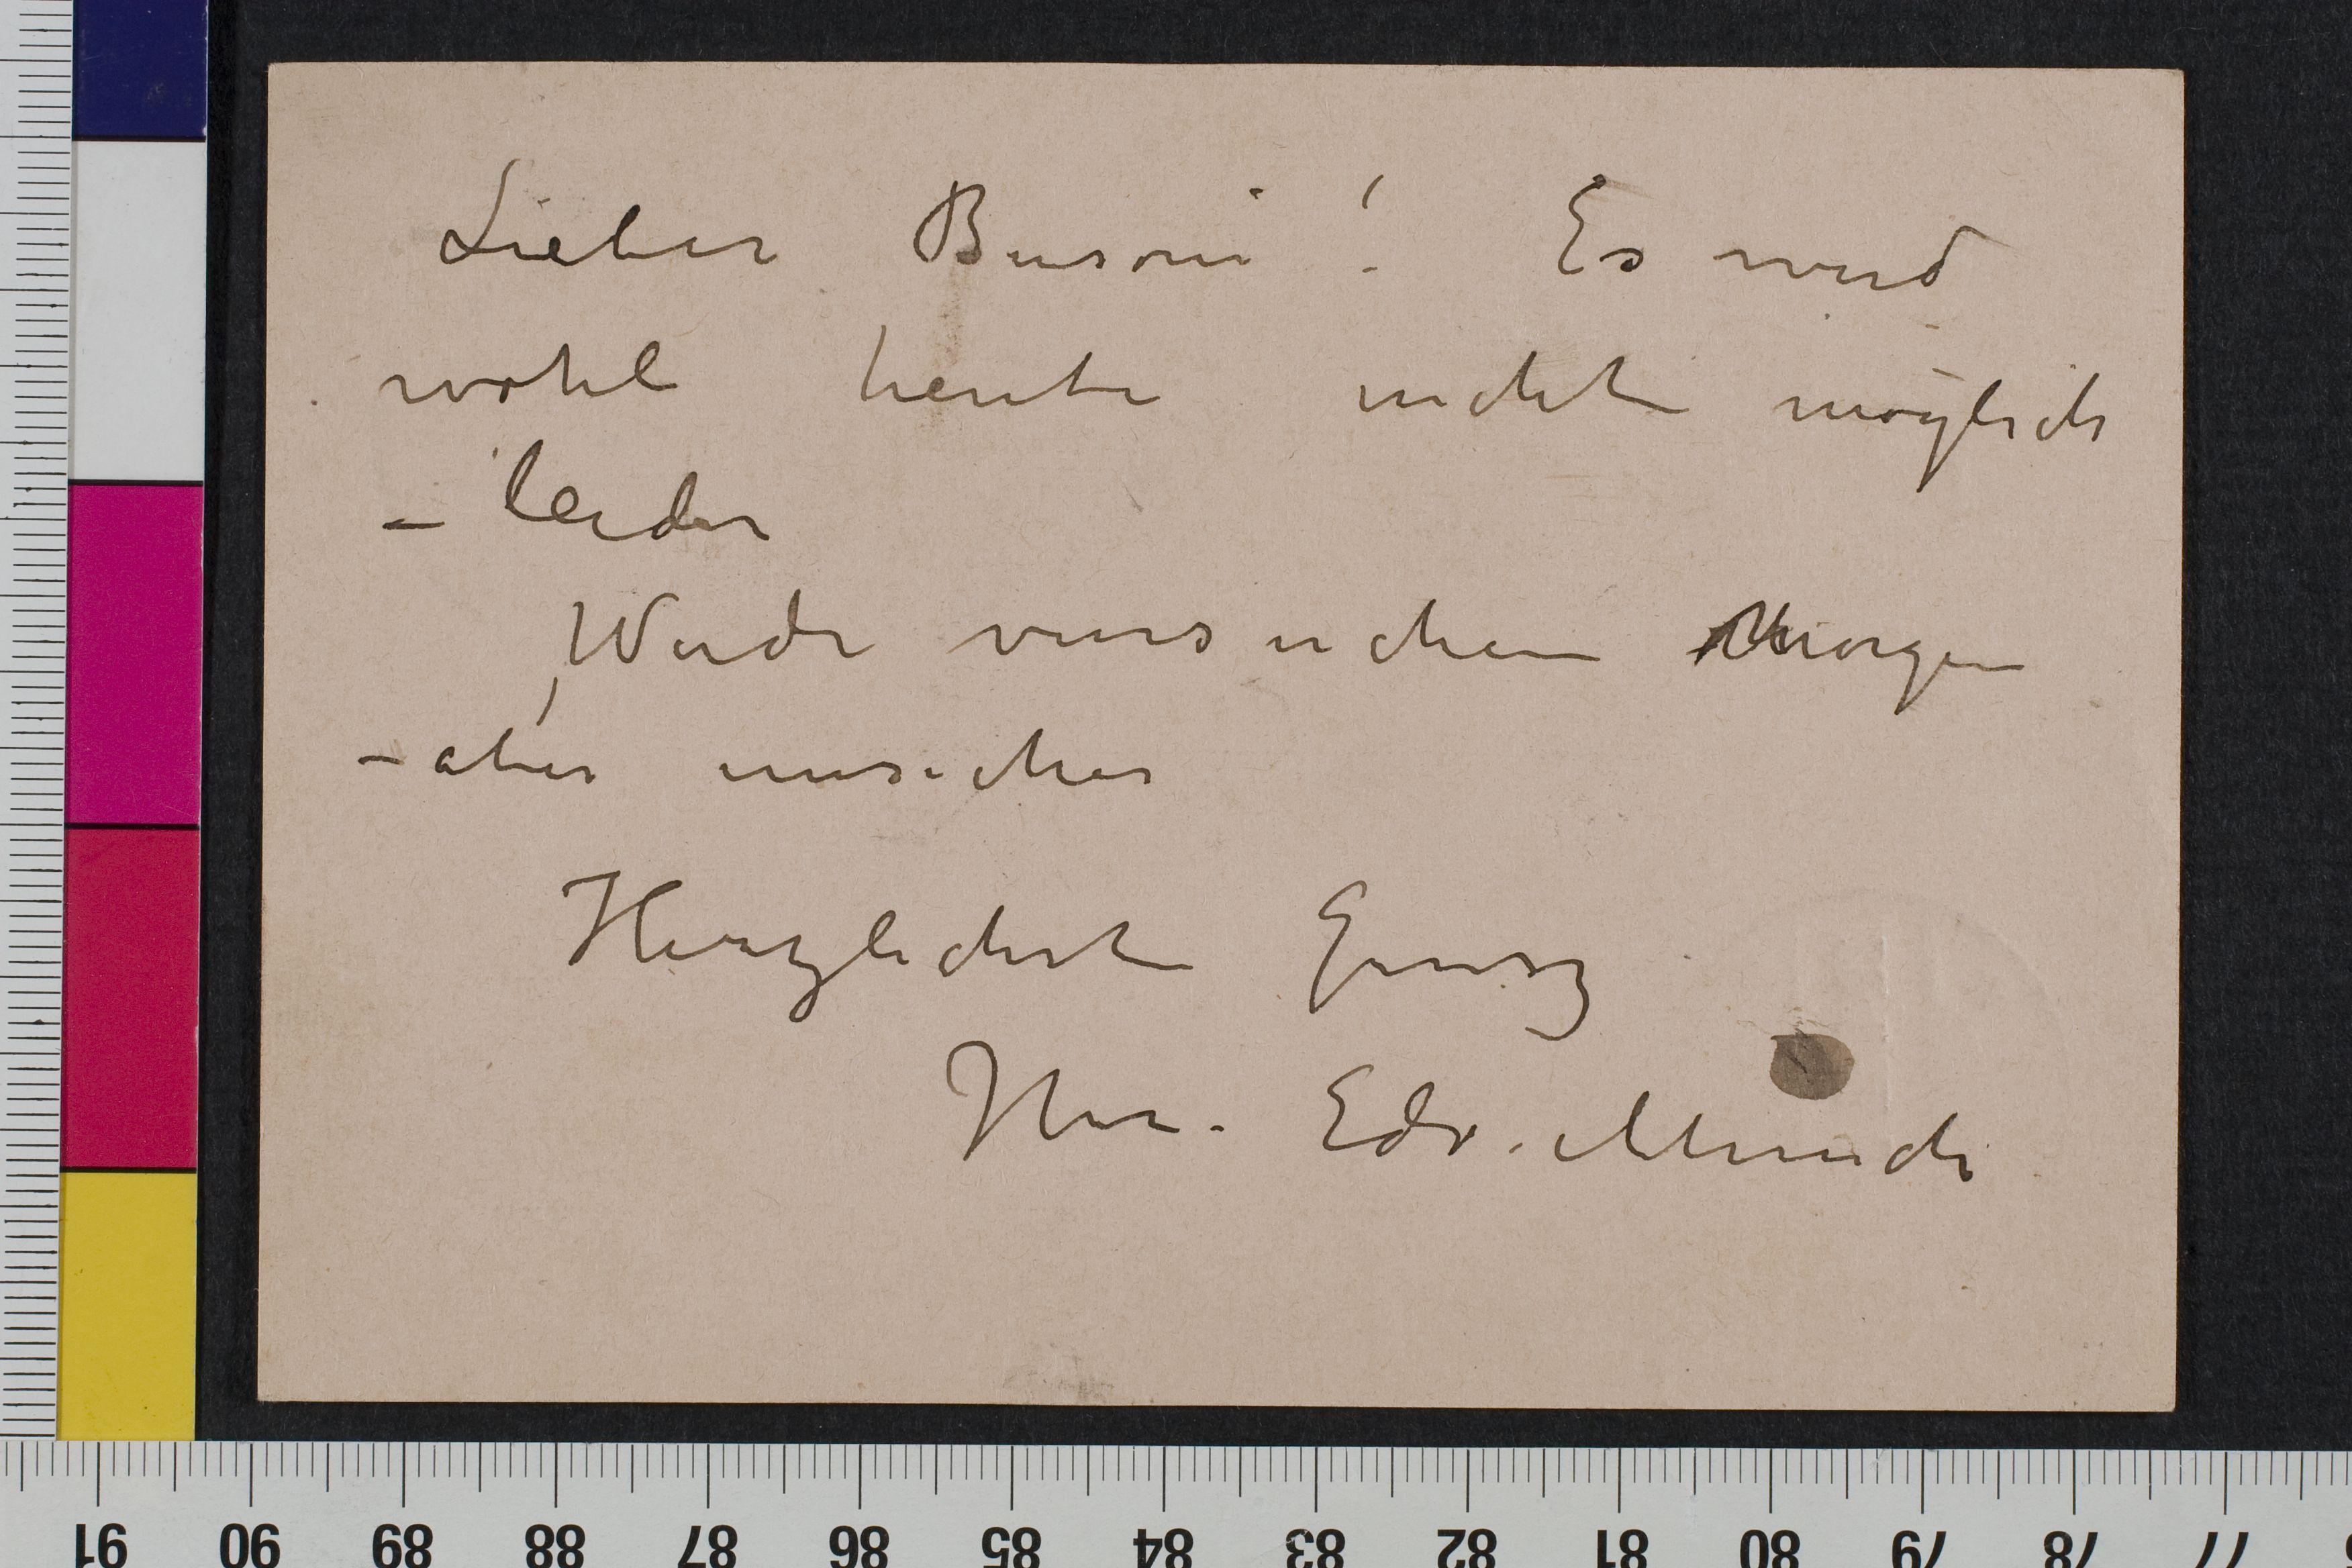 Lieber Busoni! Es wird
wohl heute nicht möglich
– leider
Werde versuchen Morgen
– aber unsicher
Herzlichste Grusz
Ihr. Edv. Munch
91 90 89 88 87 86 85 84 83 82 81 80 79 78 77